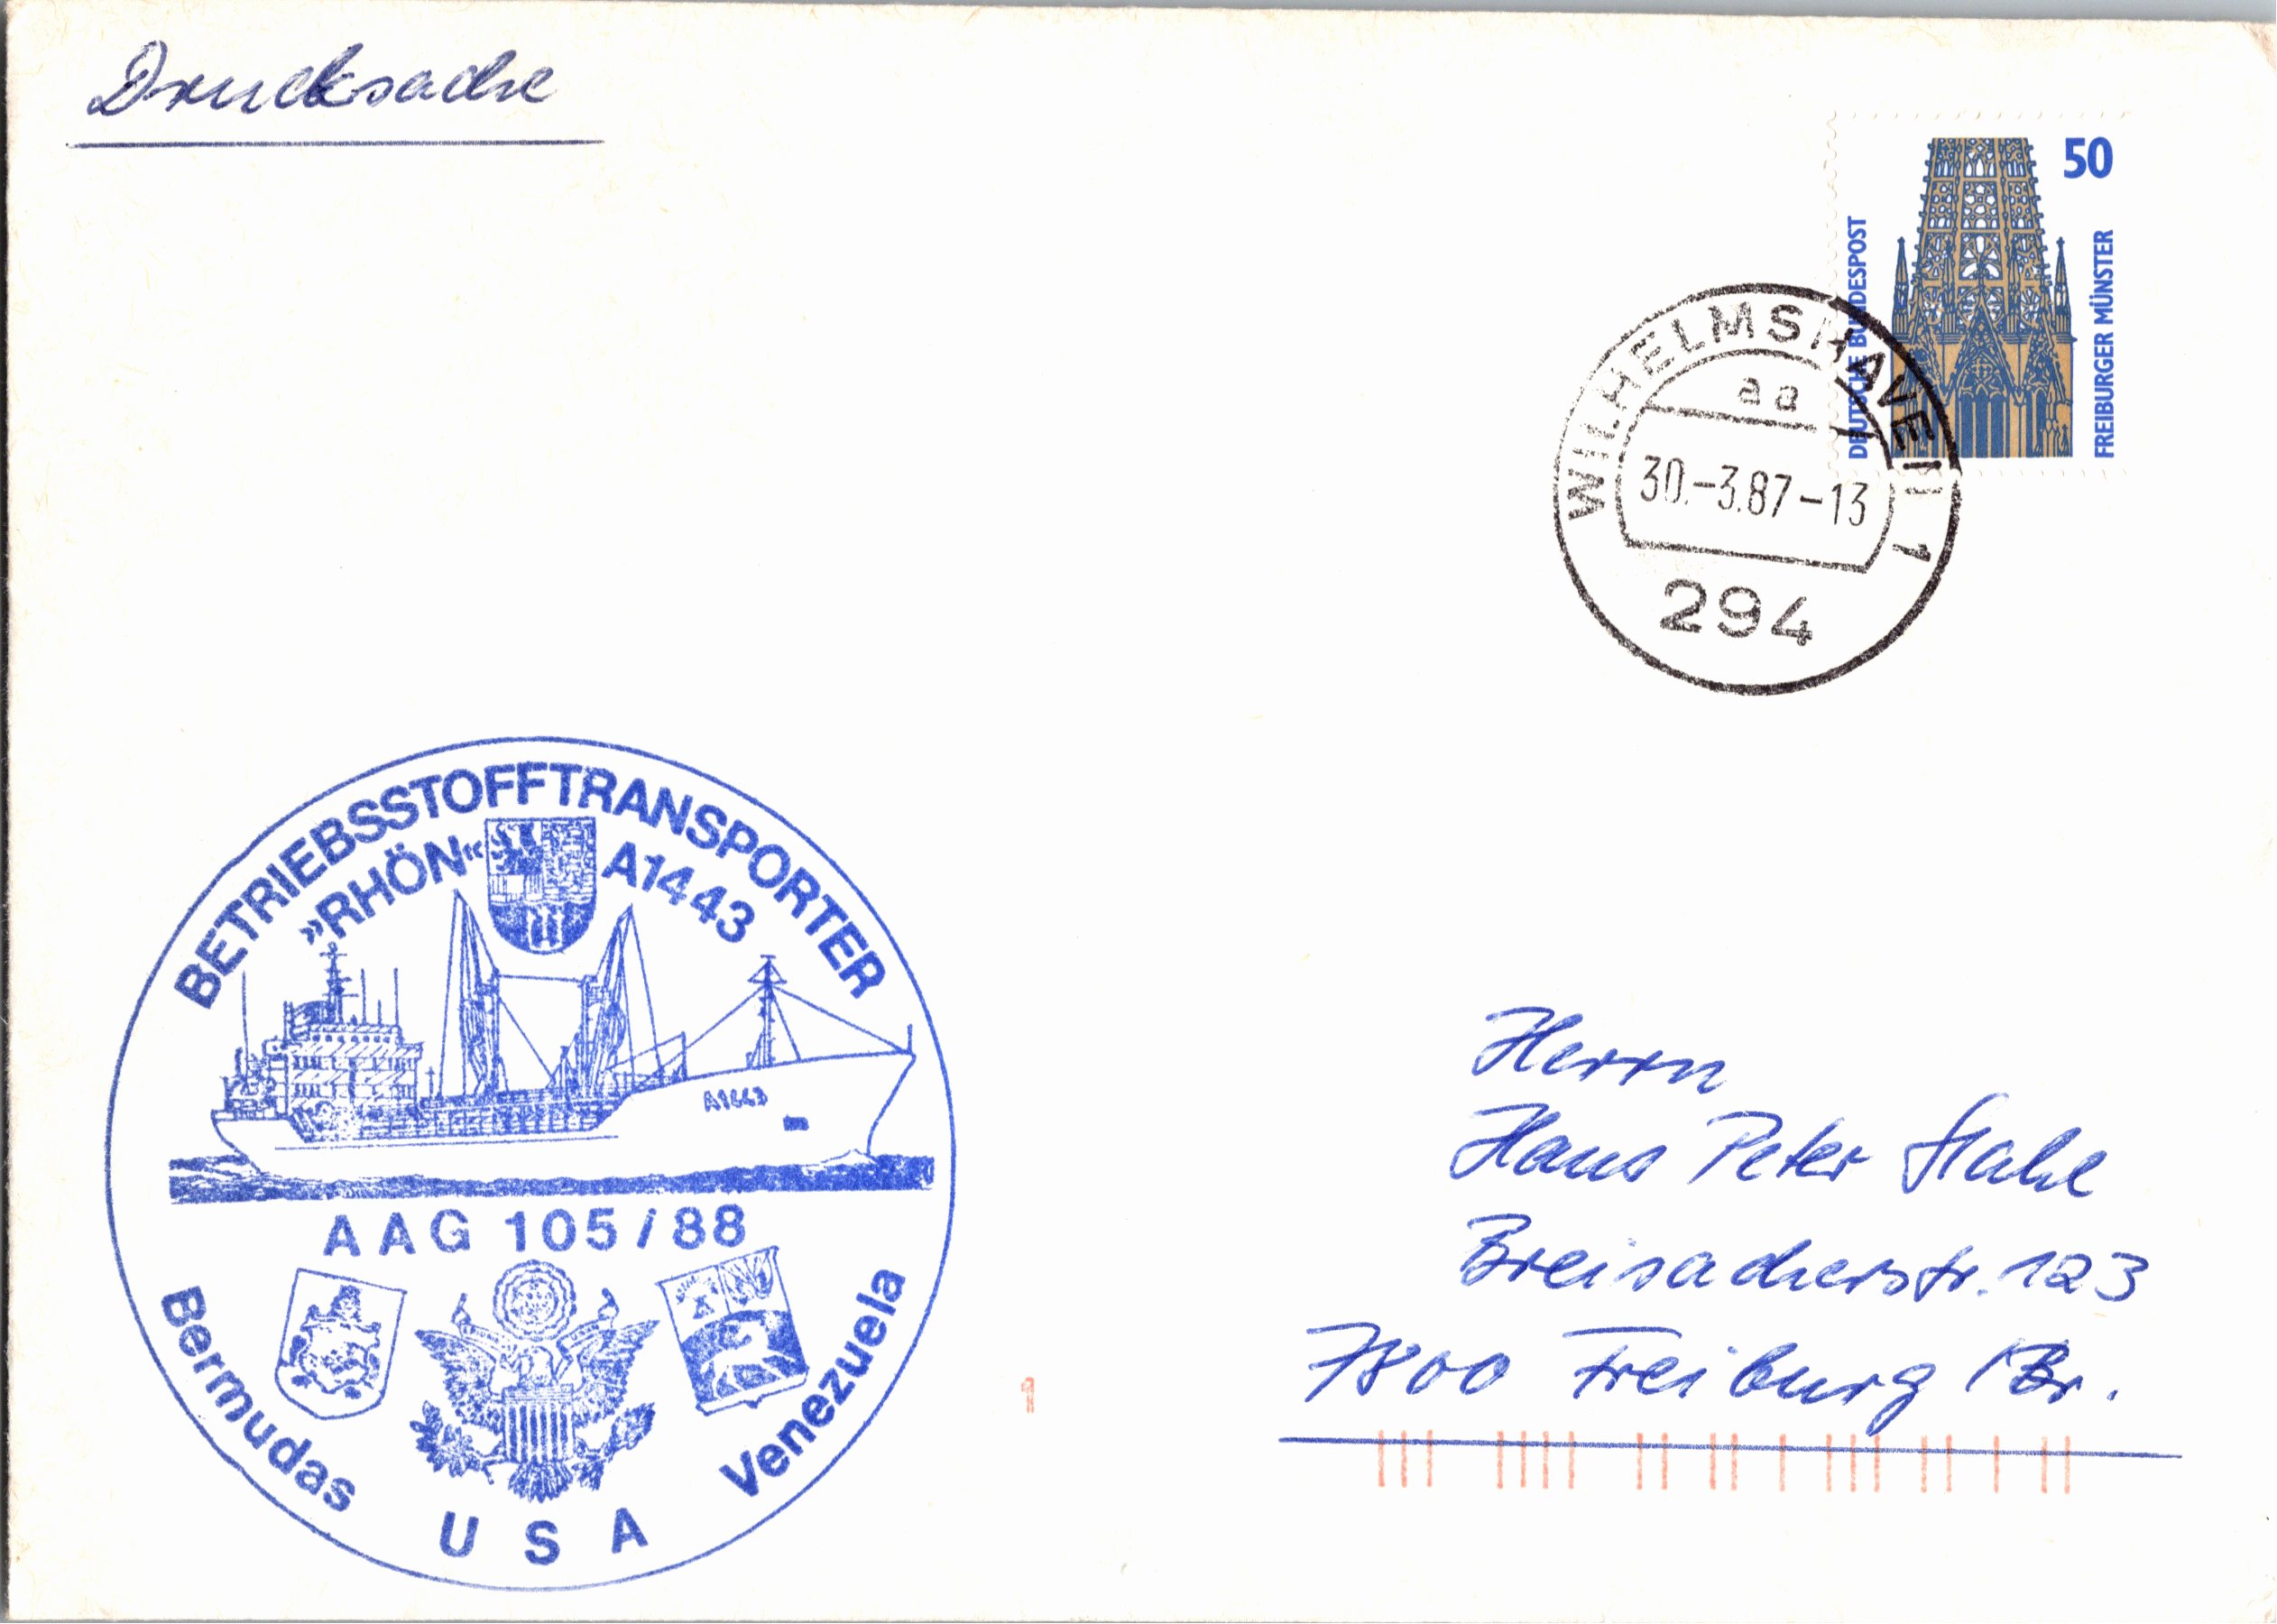 Drucksache
50
DEUTSCHE BUNDESPOST
FREIBURGER MÜNSTER
WILHELMSHAVEN 1
aa
30.-3.87-13
294
BETRIEBSSTOFFTRANSPORTER
»RHÖN« A1443
A1443
AAG 105/88
Bermudas
USA
Venezuela
1
Herrn
Hans Peter Stahl
Breisacherstr. 123
7800 Freiburg /Br.